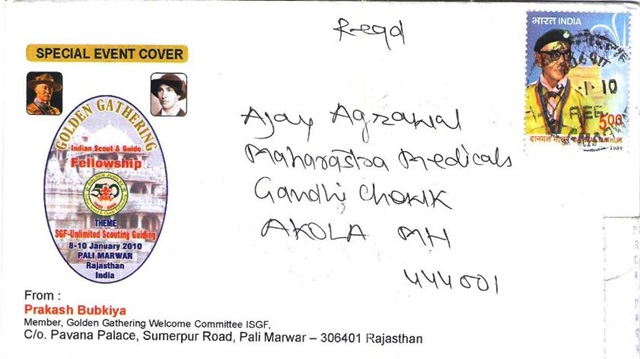 Regd
भारत INDIA
5.00
SPECIAL EVENT COVER
GOLDEN GATHERING
Indian Scout & Guide
Fellowship
50
THEME
SGF-Unlimited Scouting Guiding
8-10 January 2010
PALI MARWAR
Rajasthan
India
Ajay Agrawal
Maharastra Medicals
Gandhi Chowk
AKOLA MH
444001
From :
Prakash Bubkiya
Member, Golden Gathering Welcome Committee ISGF,
C/o. Pavana Palace, Sumerpur Road, Pali Marwar – 306401 Rajasthan